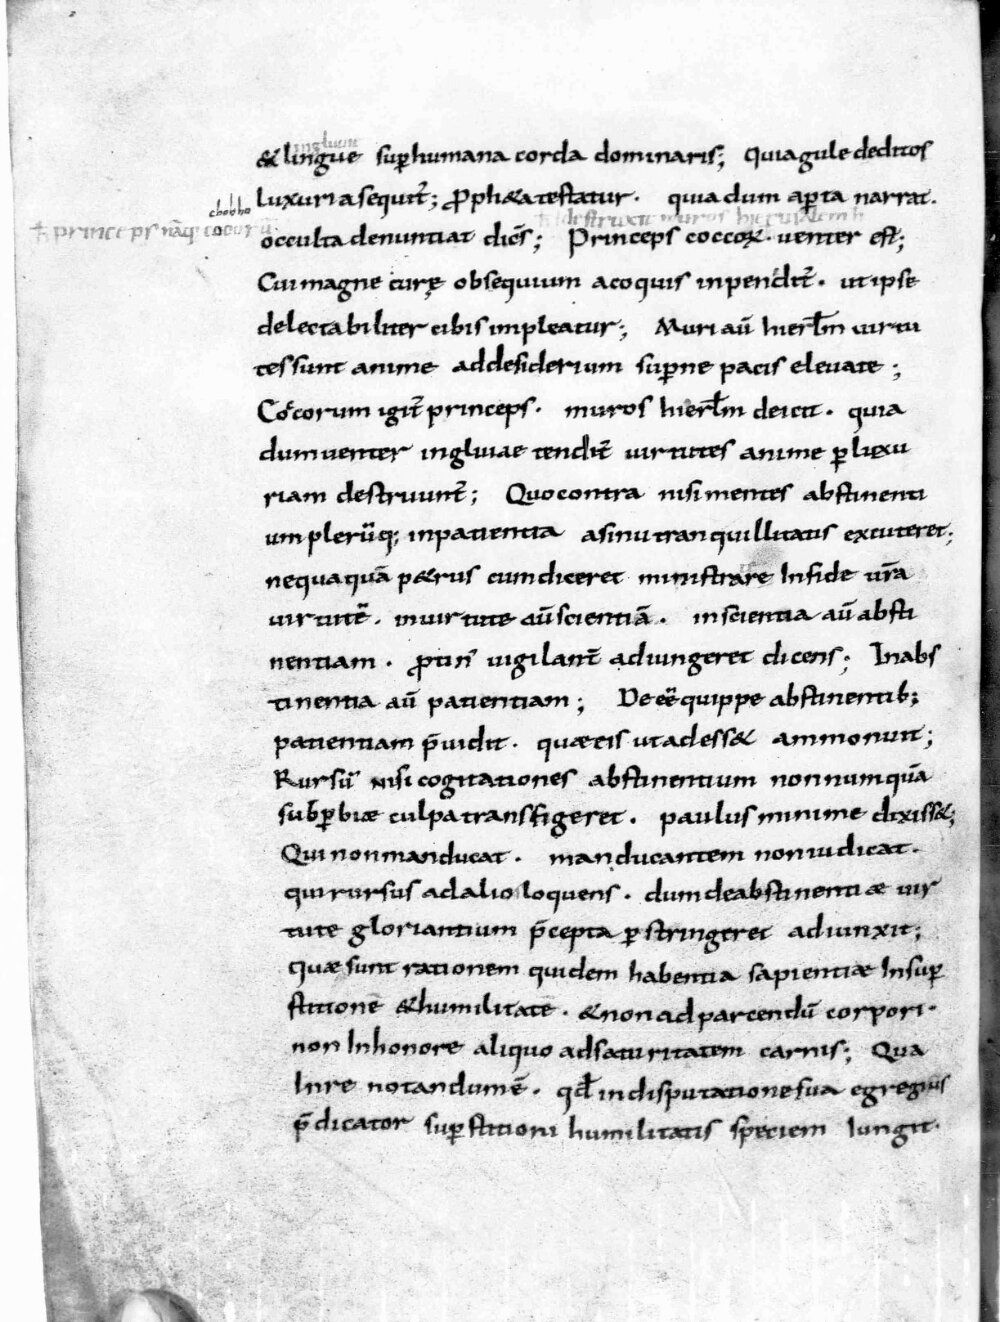 ingluuiei
& lingue sup humana corda dominaris; Quia gule deditos
luxuria sequit̄; ꝓph&a testatur. quia dum apta narrat.
chohho
ꝉ princeps nāq; cocorū
ꝉ destruxit muros hierusalem
occulta denuntiat dic̄s; Princeps coccoꝝ. uenter est;
Cui magne curę obsequium a coquis inpendit̄. ut ipse
delectabiliter cibis impleatur; Muri aū hierl̄m uirtu
tes sunt anime ad desiderium supne pacis eleuate;
Cocorum igit̄ princeps. muros hierl̄m deicit. quia
dum uenter ingluiae tendit̄ uirtutes anime ꝑ luxu
riam destruunt̄; Quo contra nisi mentes abstinenti
um plerūq; inpatientia a sinu tranquillitatis excuteret;
nequaquā p&rus cum diceret ministrare In fide ur̄a
uirtutē. in uirtute aū scientiā. in scientia aū absti
nentiam. ꝓtin' uigilant̄ adiungeret dicens; In abs
tinentia aū patientiam; De eē quippe abstinentib;
patientiam p̄uidit. quae eis ut adess& ammonuit;
Rursū nisi cogitationes abstinentium non numquā
supbiae culpa transfigeret. paulus minime dixiss&;
Qui non manducat. manducantem non iudicat.
qui rursus ad alio loquens. dum de abstinentiae uir
tute gloriantium p̄cepta ꝑstringeret adiunxit;
Quae sunt rationem quidem habentia sapientiae In sup
stitione & humilitate. & non ad parcendū corpori.
non In honore aliquo ad saturitatem carnis; Qua
In re notandum ē. qd̄ in disputatione sua egregius
p̄dicator supstitioni humilitatis speciem Iungit.